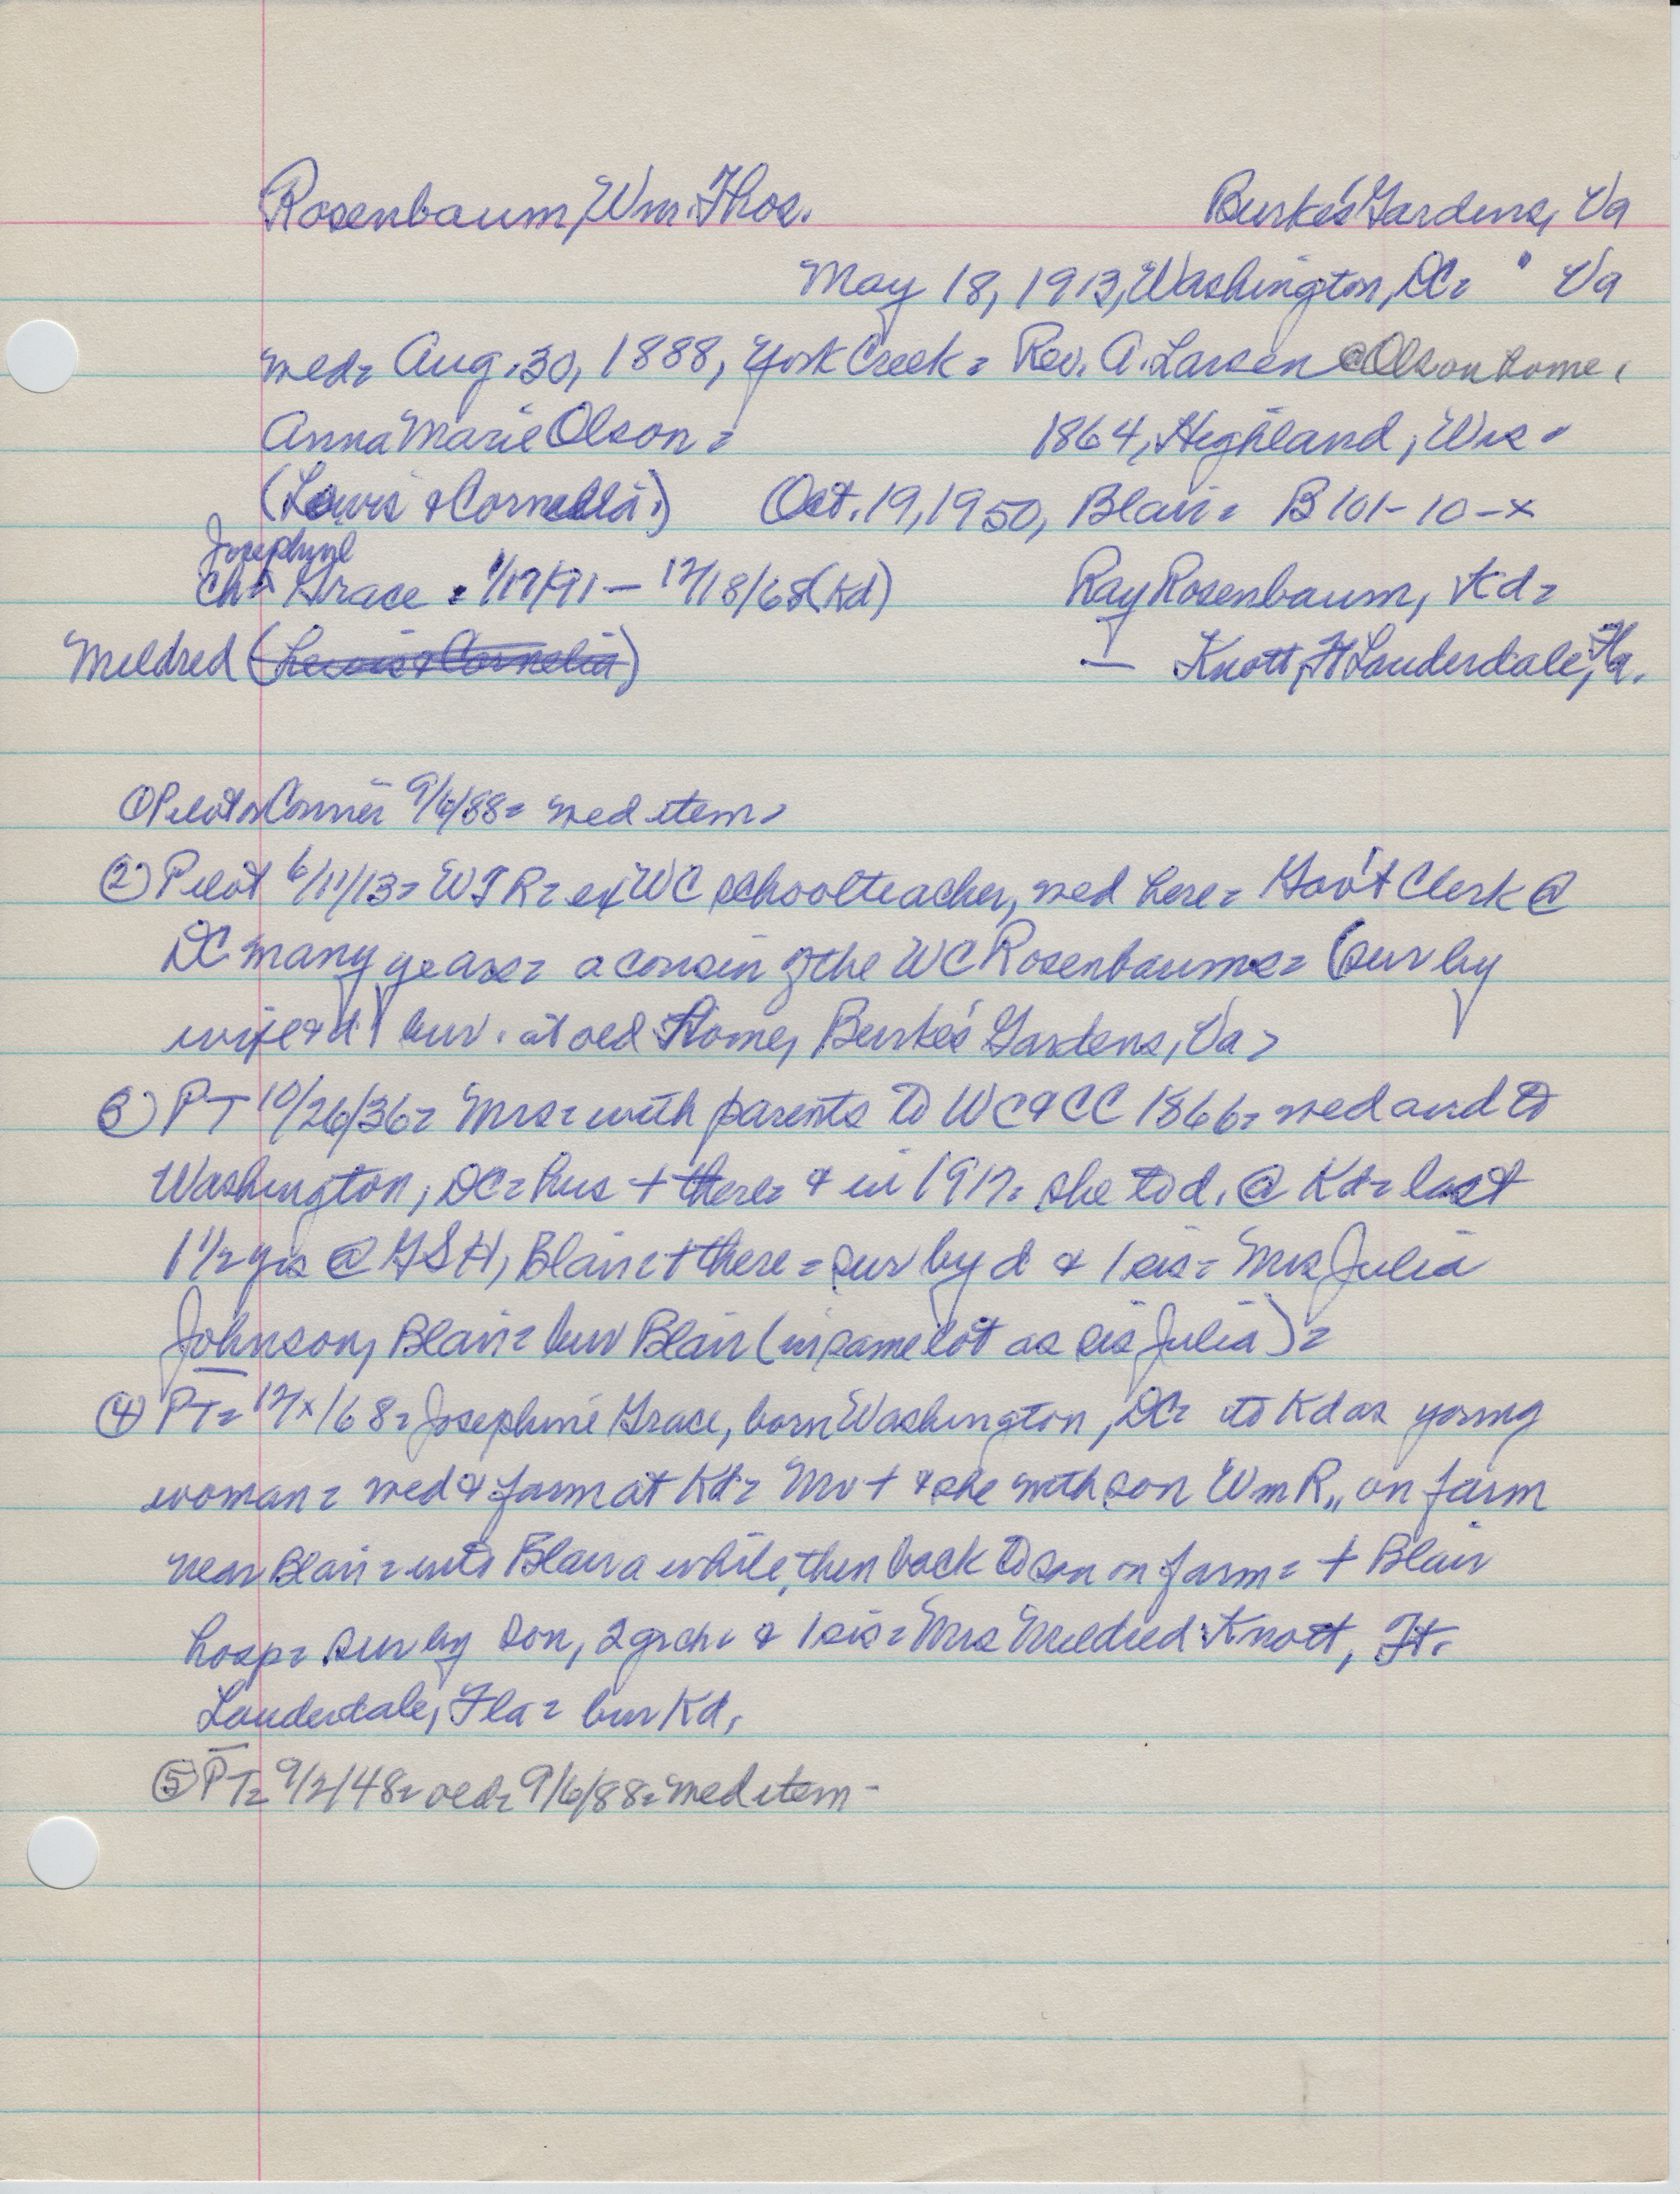 Rosenbaum, Wm. Thos. Burke's Gardens, Va
May 18, 1913, Washington, DC = " Va
wed = Aug. 30, 1888, York Creek = Rev. A. Larsen @ Olson home.
Anna Marie Olson = 1864, Highland, Wis =
(Lewis & Cornelia.) Oct. 19, 1950, Blair = B 101-10-x
Josephine
Ch = Grace = 1/17/91 - 12/18/68 (Kd) Ray Rosenbaum, Kd =
Mildred (Lewis & Cornelia) — Knott, Ft Lauderdale, Fla.
① Pilot 9/6/88 = wed item =
② Pilot 6/11/13 = WTR = ex WC schoolteacher, wed here = Gov't Clerk @
DC many years = a cousin of the WC Rosenbaums = (sur by
wife & d) bur. at old Home, Burke's Gardens, Va =
③ PT 10/26/36 = Mrs = with parents to WC & CC 1866 = wed and to
Washington, DC = hus + there = & in 1917 = she to d. @ Kd = last
1 1/2 yrs @ GSH, Blair = + there = sur by d & 1 sis = Mrs Julia
Johnson, Blair = bur Blair (in same lot as sis Julia) =
④ PT = 12/x/68 = Josephine Grace, born Washington, DC = to Kd as young
woman = wed & farm at Kd = Mr + & she with son Wm R,, on farm
near Blair = into Blair a while, then back to son on farm = + Blair
hosp = sur by son, 2 grch = & 1 sis = Mrs Mildred Knott, Ft.
Lauderdale, Fla = bur Kd.
⑤ PT = 9/2/48 = old = 9/6/88 = wed item -